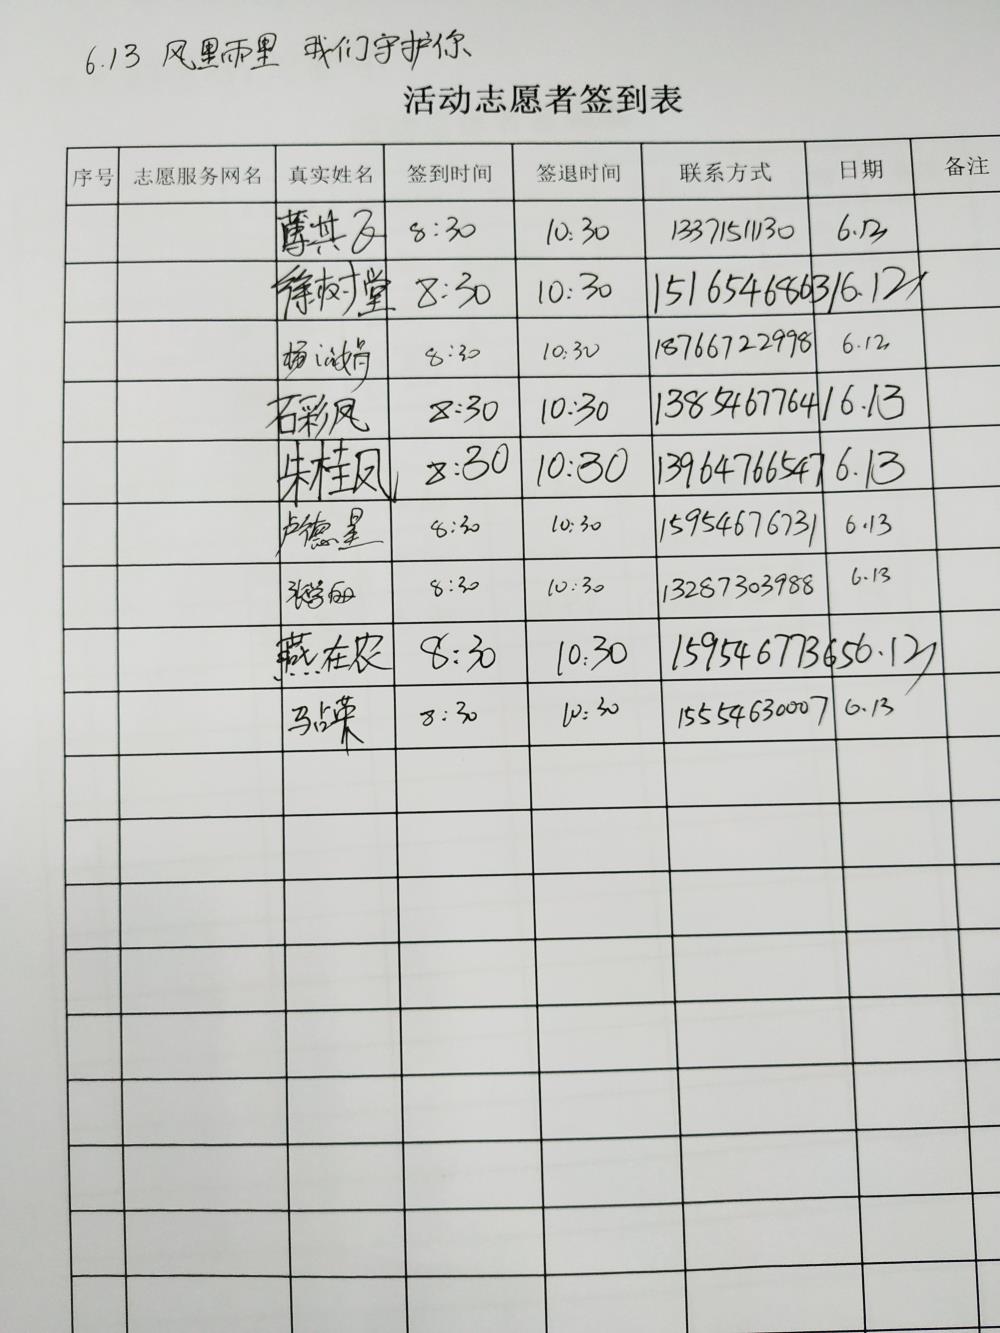 6.13 风里雨里 我们守护你
活动志愿者签到表
序号 志愿服务网名 真实姓名 签到时间 签退时间 联系方式 日期 备注
8:30 10:30 13371511130 6.13
徐树堂 8:30 10:30 15165468631 6.13
8:30 10:30 18766722998 6.13
石彩凤 8:30 10:30 13854677641 6.13
朱桂凤 8:30 10:30 13964766547 6.13
卢德星 8:30 10:30 15954676731 6.13
8:30 10:30 13287303988 6.13
燕在农 8:30 10:30 15954677365 6.13
马占荣 8:30 10:30 15554630007 6.13